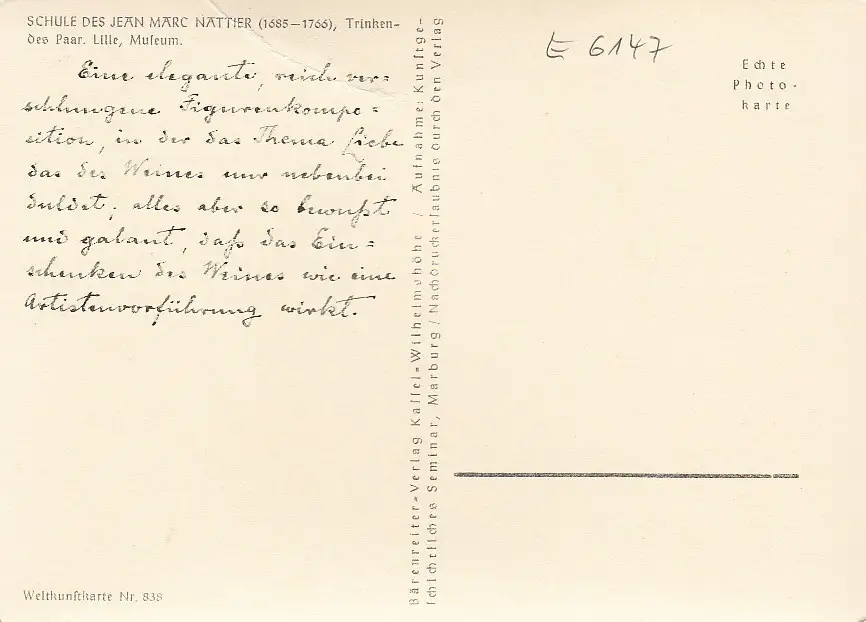 SCHULE DES JEAN MARC NATTIER (1685–1766), Trinken-
des Paar. Lille, Muſeum.
Eine elegante, reich ver=
schlungene Figurenkompo=
sition, in der das Thema Liebe
das des Weines nur nebenbei
duldet; alles aber so bewußt
und galant, daß das Ein=
schenken des Weines wie eine
Artistenvorführung wirkt.
Weltkunſtkarte Nr. 838
Bärenreiter-Verlag Kaſſel-Wilhelmshöhe / Aufnahme: Kunſtge-
ſchichtliches Seminar, Marburg / Nachdruckerlaubnis durch den Verlag
E 6147
Echte
Photo-
karte